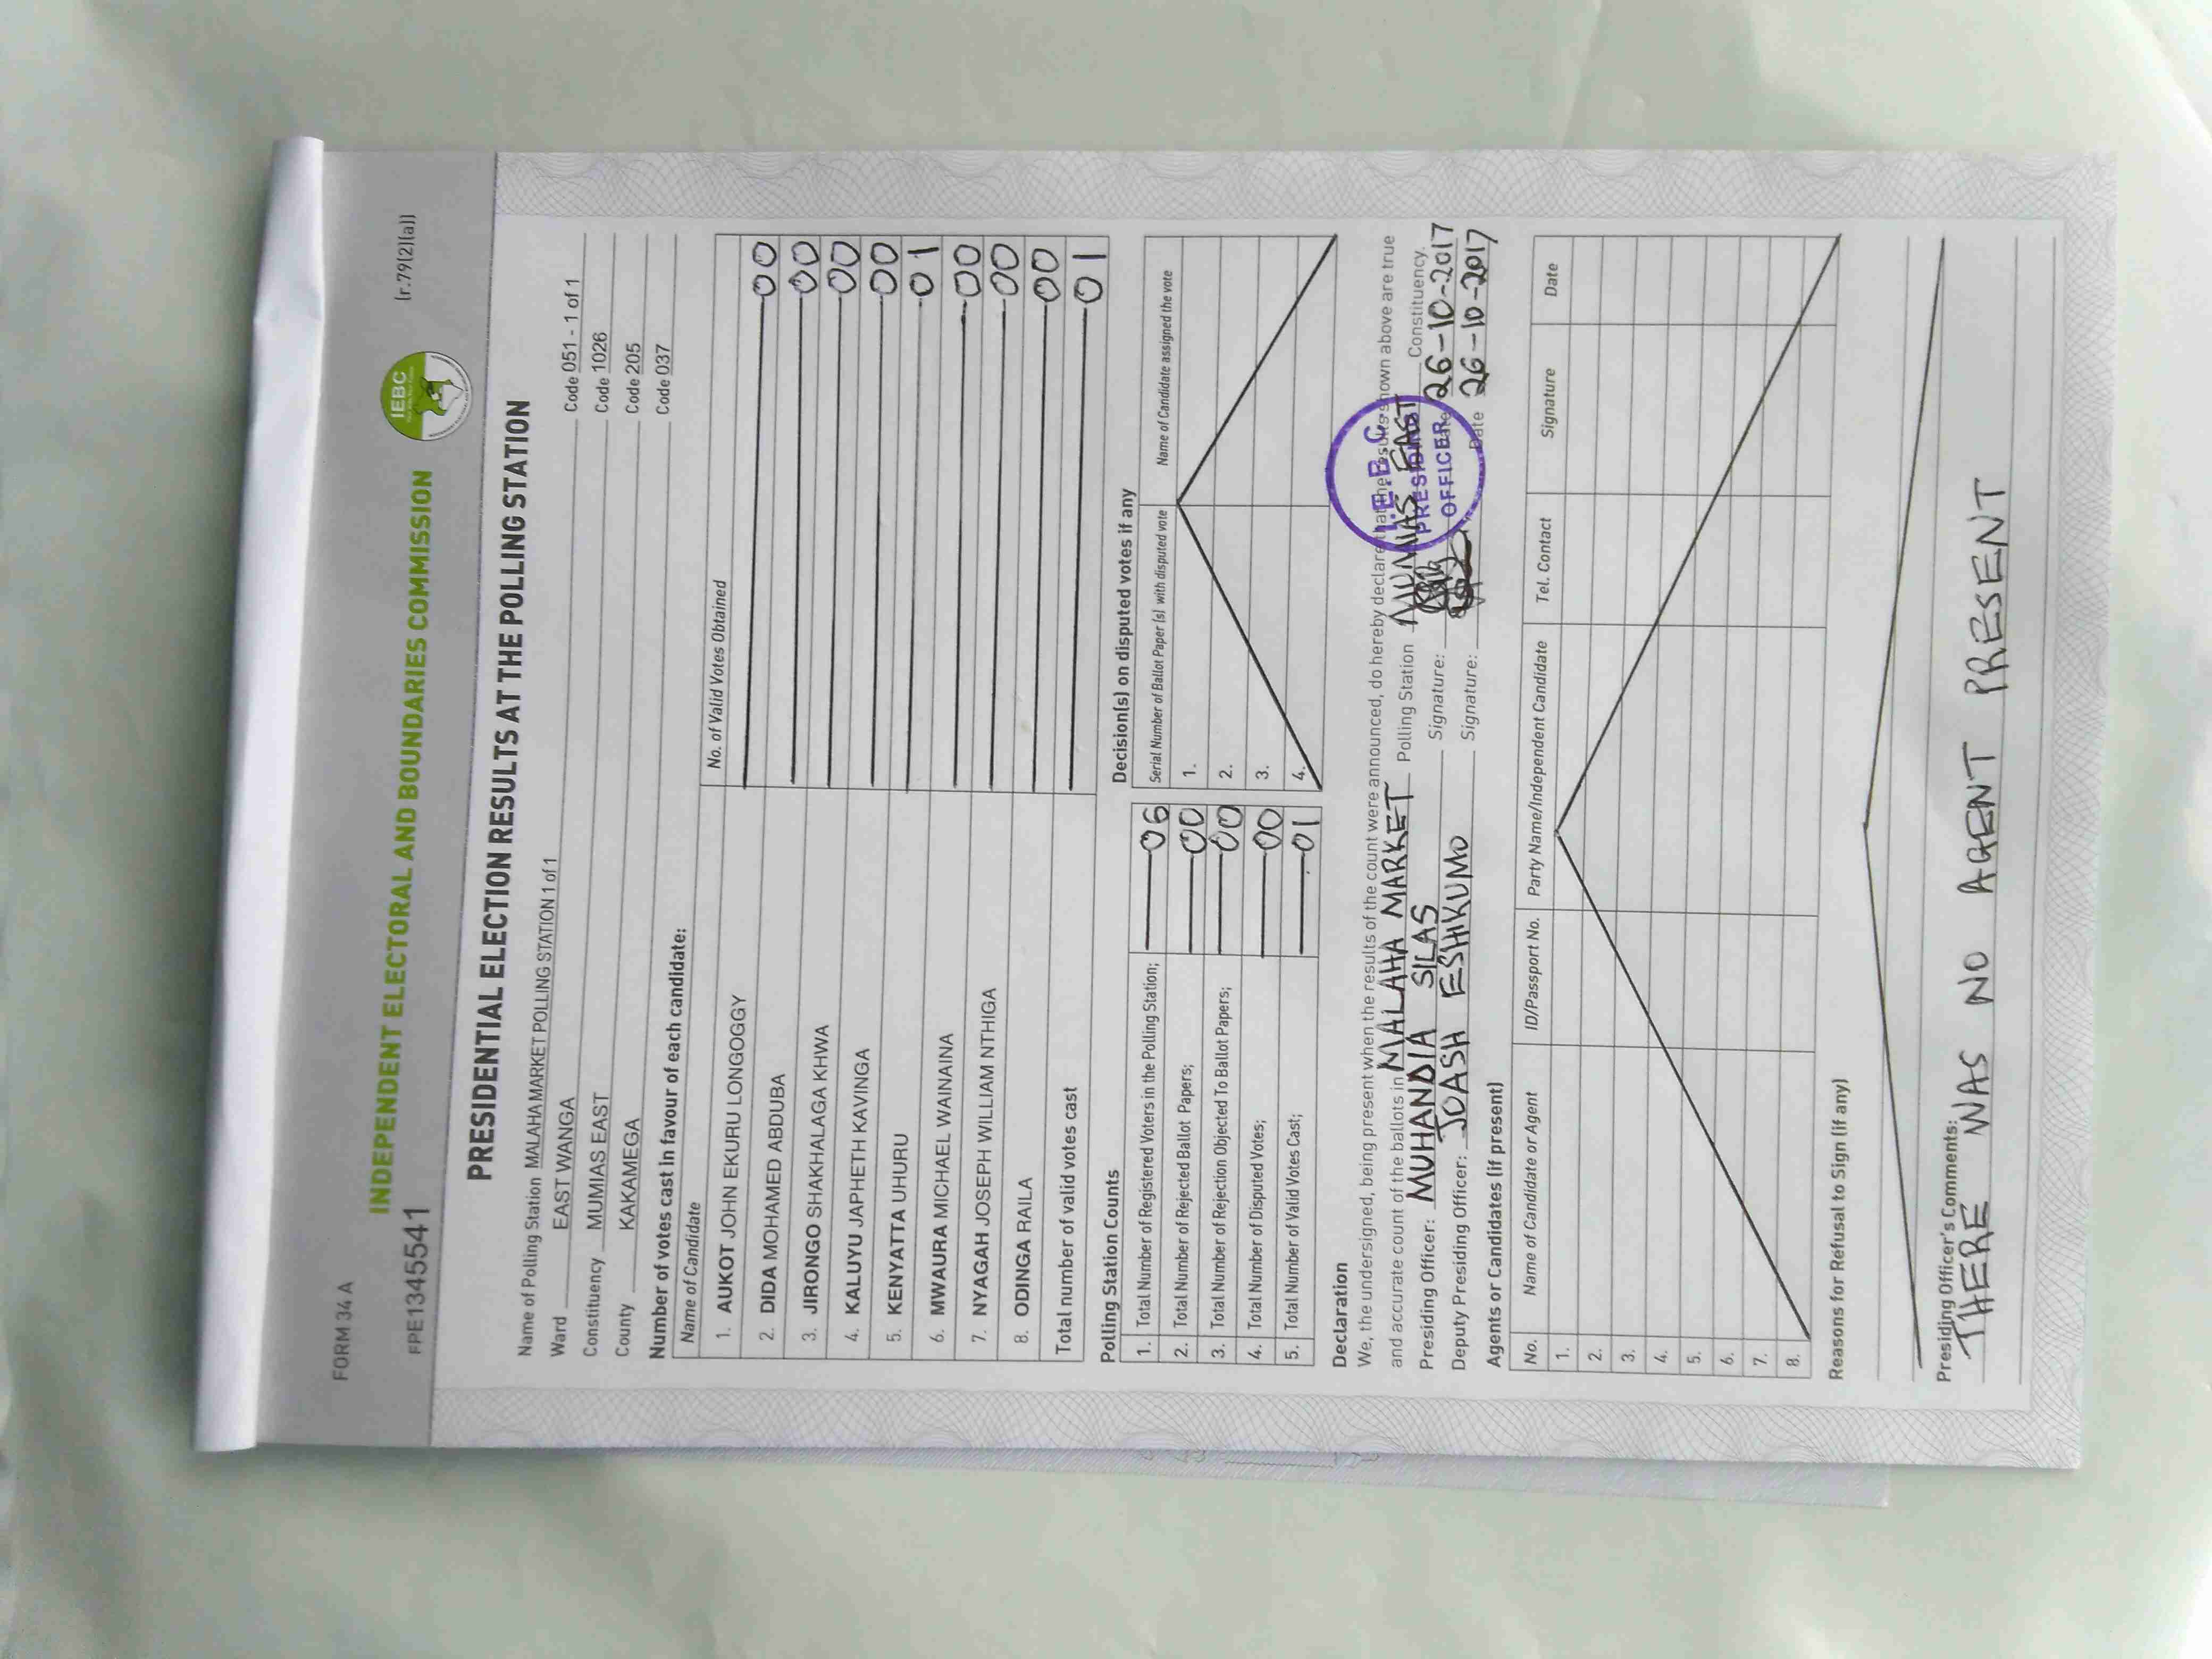 FORM 34 A
INDEPENDENT ELECTORAL AND BOUNDARIES COMMISSION
IEBC
(r.79(2)(a))
FPE1345541
PRESIDENTIAL ELECTION RESULTS AT THE POLLING STATION
Name of Polling Station MALAHA MARKET POLLING STATION 1 of 1 Code 051 - 1 of 1
Ward EAST WANGA Code 1026
Constituency MUMIAS EAST Code 205
County KAKAMEGA Code 037
Number of votes cast in favour of each candidate:
Name of Candidate No. of Valid Votes Obtained
1. AUKOT JOHN EKURU LONGOGGY 00
2. DIDA MOHAMED ABDUBA 00
3. JIRONGO SHAKHALAGA KHWA 00
4. KALUYU JAPHETH KAVINGA 00
5. KENYATTA UHURU 01
6. MWAURA MICHAEL WAINAINA 00
7. NYAGAH JOSEPH WILLIAM NTHIGA 00
8. ODINGA RAILA 00
Total number of valid votes cast 01
Polling Station Counts
1. Total Number of Registered Voters in the Polling Station; 06
2. Total Number of Rejected Ballot Papers; 00
3. Total Number of Rejection Objected To Ballot Papers; 00
4. Total Number of Disputed Votes; 00
5. Total Number of Valid Votes Cast; 01
Decision(s) on disputed votes if any
Serial Number of Ballot Paper (s) with disputed vote Name of Candidate assigned the vote
1.
2.
3.
4.
Declaration
We, the undersigned, being present when the results of the count were announced, do hereby declare that the results shown above are true
and accurate count of the ballots in MALAHA MARKET Polling Station MUMIAS EAST Constituency.
Presiding Officer: MUHANDIA SILAS Signature: Date 26-10-2017
Deputy Presiding Officer: JOASH ESHIKUMO Signature: Date 26-10-2017
I.E.B.C.
PRESIDING
OFFICER
Agents or Candidates (if present)
No. Name of Candidate or Agent ID/Passport No. Party Name/Independent Candidate Tel. Contact Signature Date
1.
2.
3.
4.
5.
6.
7.
8.
Reasons for Refusal to Sign (if any)
Presiding Officer's Comments:
THERE WAS NO AGENT PRESENT